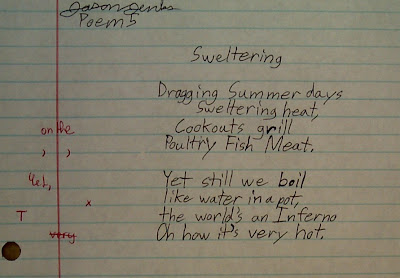 Poem 5
Sweltering
Dragging Summer days
Sweltering heat,
on the
Cookouts grill
, ,
Poultry Fish Meat.
Yet,
Yet still we boil
x
like water in a pot,
T
the world's an Inferno
very
Oh how it's very hot.